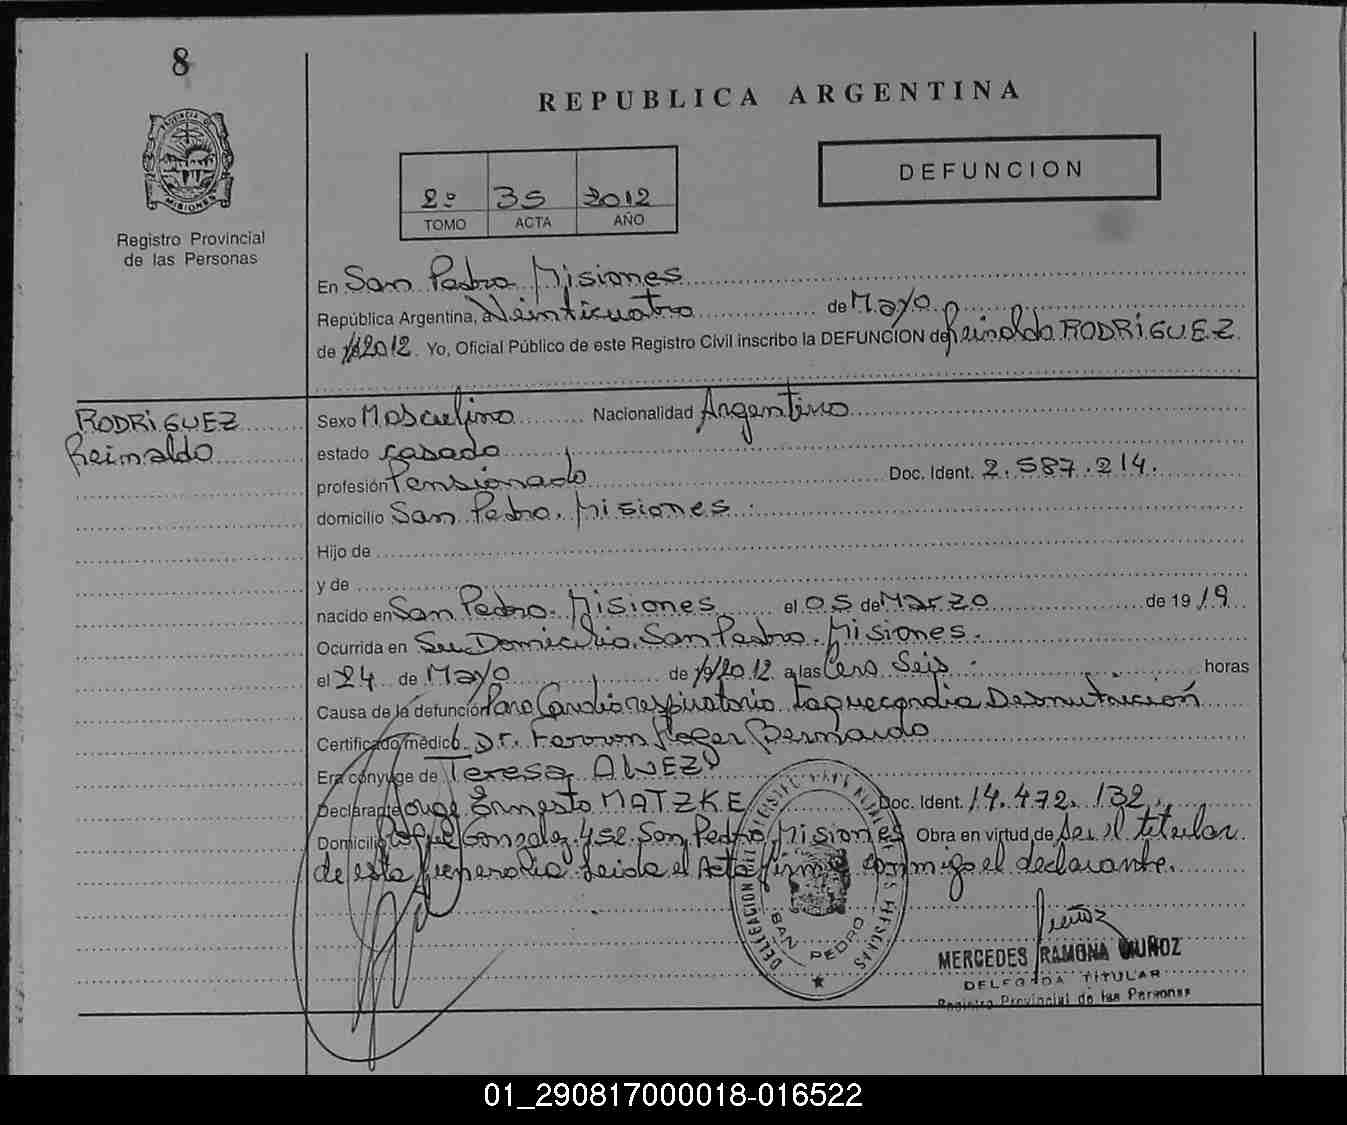 8
REPUBLICA ARGENTINA
DEFUNCION
2º 35 2012
TOMO ACTA AÑO
PROVINCIA DE
MISIONES
Registro Provincial
de las Personas
En San Pedro Misiones
República Argentina, a Veinticuatro de Mayo
de 2012. Yo, Oficial Público de este Registro Civil inscribo la DEFUNCION de Reinaldo RODRIGUEZ
RODRIGUEZ
Reinaldo
Sexo Masculino Nacionalidad Argentino
estado casado
profesión Pensionado Doc. Ident. 2.587.214.
domicilio San Pedro. Misiones
Hijo de
y de
nacido en San Pedro. Misiones el 05 de Marzo de 1919
Ocurrida en Su Domicilio. San Pedro. Misiones.
el 24 de Mayo de 2012 a las Cero Seis horas
Causa de la defunción Paro Cardiorespiratorio Taquecardia Desnutrición
Certificado médico Dr. Roger Bernardo
Era cónyuge de Teresa ALVEZ
Declarante Ernesto MATZKE Doc. Ident. 14.472.132
Domicilio Gonzalez 452 San Pedro Misiones Obra en virtud de Ser el titular
de esta funeraria Leida el Acta firma conmigo el declarante.
DELEGACION DEL
SAN PEDRO
MERCEDES RAMONA MUÑOZ
DELEGADA TITULAR
Registro Provincial de las Personas
01_290817000018-016522